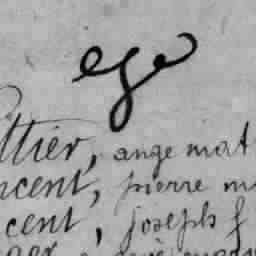 ege
ttier, ange mat
ncent, pierre m
cent, joseph f